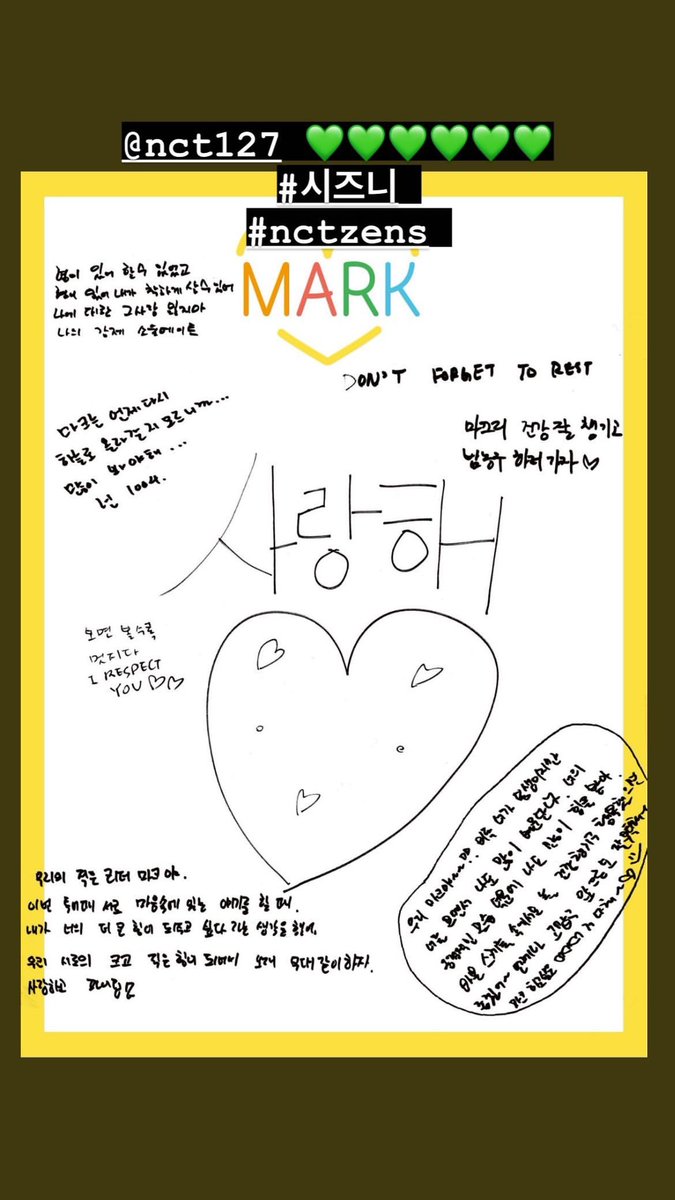 @nct127 💚💚💚💚💚💚
#시즈니
#nctzens
MARK
형이 있어 할수 있었고
형이 있어 내가 착하게 살수있어
나에 대한 그사랑 잊지마
나의 강제 소울메이트
DON'T FORGET TO REST
마크는 언제다시
하늘로 올라갈지 모르니까...
많이 봐야해...
넌 1004.
마크리 건강 잘 챙기고
님농구 하러 가자 ♡
사랑해
보면 볼수록
멋지다
I RESPECT
YOU ♡♡
우리의 작은 리더 마크야.
이번 투어때 서로 마음속에 있는 얘기를 할 때,
내가 너의 더 큰 힘이 되주고 싶다 라는 생각을 했어.
우리 서로의 크고 작은 힘이 되어서 오래 무대 같이하자.
사랑하고
우리 너가 동생이지만
너를 보면서 나도 많이 배운단다. 너의
모습 때문에 나도 많이 힘을 받아.